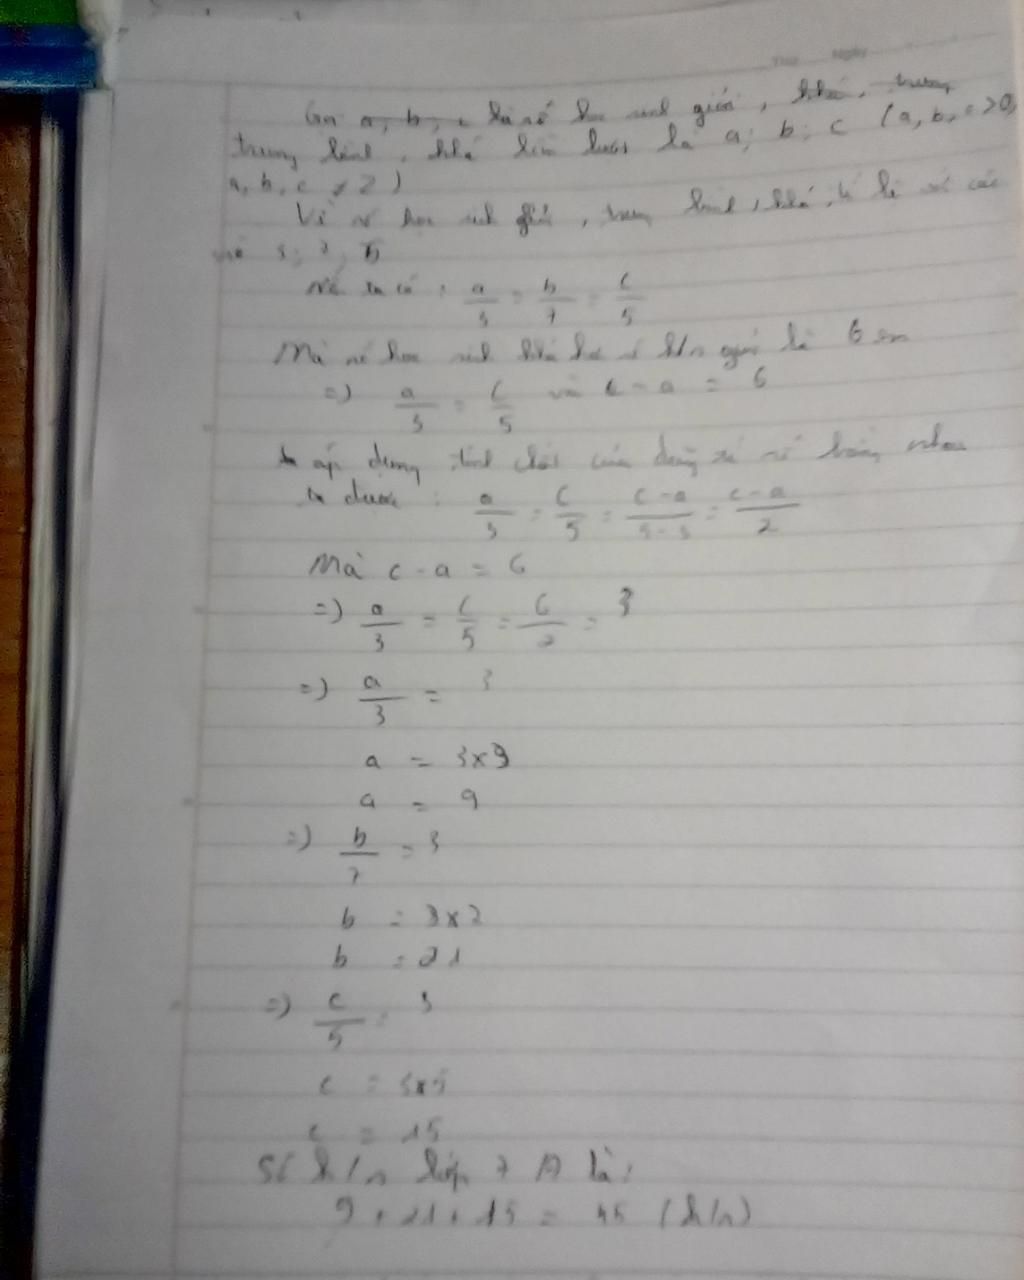 Thứ Ngày
Gọi a, b, c là số học sinh giỏi, khá, trung
trung bình, khá lần lượt là a; b; c (a, b, c >0,
a, b, c ∉ Z)
Vì số học sinh giỏi, trung bình, khá, tỉ lệ với các
số 3; 7; 5
Nên ta có : a/3 = b/7 = c/5
Mà số học sinh khá hơn số h/s giỏi là 6 em
=) a/3 = c/5 và c - a = 6
áp dụng tính chất của dãy tỉ số bằng nhau
ta được : a/3 = c/5 = c-a/5-3 = c-a/2
Mà c - a = 6
=) a/3 = c/5 = 6/2 = 3
=) a/3 = 3
a = 3x3
a = 9
=) b/7 = 3
b = 3x7
b = 21
=) c/5 = 3
c = 3x5
c = 15
Số h/s lớp 7A là:
9 + 21 + 15 = 45 (h/s)